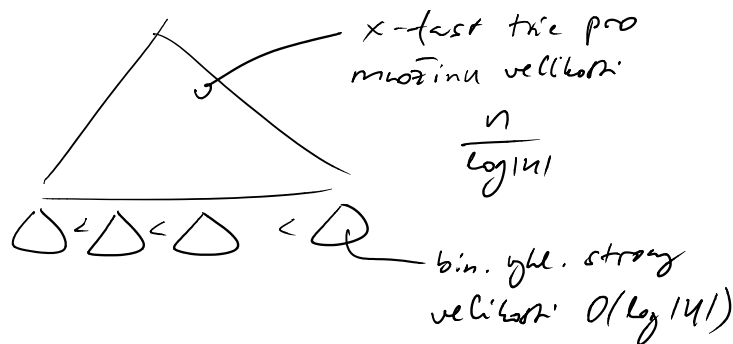 x-fast trie pro
množinu velikosti
n
log|U|
< < <
bin. vyhl. stromy
velikosti O(log|U|)